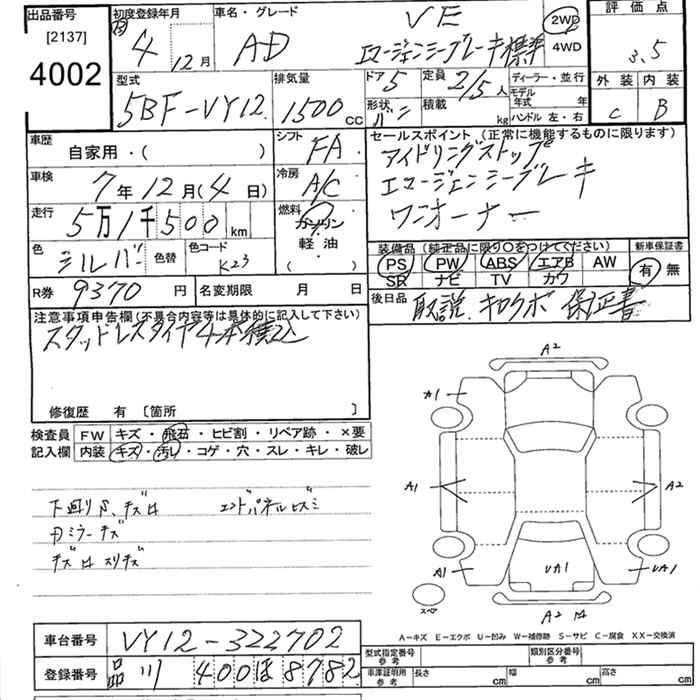 出品番号 [2137] 4002
初度登録年月 4年 12月
車名・グレード AD VE エマージェンシーブレーキ標準
2WD 4WD
評価点 3.5
外装 C 内装 B
型式 5BF-VY12
排気量 1500cc
ドア 5 形状 バン
定員 2/5人 積載 kg
ディーラー・並行
モデル年式 年
ハンドル 左・右
車歴 自家用・( )
シフト FA
車検 7年12月(4日)
冷房 A/C
走行 5万1千500km
燃料 ガソリン 軽油 ( )
色 シルバー 色替 色コード K23
R券 9370円 名変期限 月 日
セールスポイント (正常に機能するものに限ります)
アイドリングストップ
エマージェンシーブレーキ
ワンオーナー
装備品(純正品に限り○をつけてください) 新車保証書
PS PW ABS エアB AW 有・無
SR ナビ TV カワ
後日品 取説.キロクボ 保証書
注意事項申告欄(不具合内容等は具体的に記入して下さい)
スタッドレスタイヤ4本積込
修復歴 有 〔箇所 〕
検査員記入欄 FW キズ・飛石・ヒビ割・リペア跡・×要
内装 キズ・汚レ・コゲ・穴・スレ・キレ・破レ
下廻りS、キズロ エンドパネルヒズミ
ミラーキズ
キズロ スリキズ
A2
A1
A1 A2
A1 UA1 UA1
スペア
A2
A-キズ E-エクボ U-凹み W-補修跡 S-サビ C-腐食 XX-交換済
車台番号 VY12-322702
型式指定番号 参考 類別区分番号 参考
登録番号 品川 400 ほ 8782
車庫証明用 参考 長さ cm 幅 cm 高さ cm